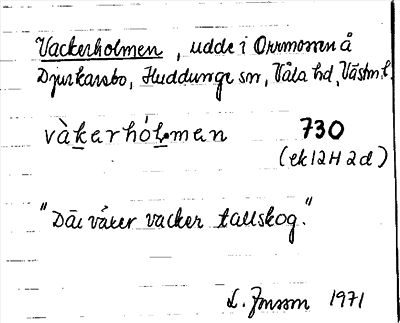 Vackerholmen, udde i Orrmossen å
Djurkarsbo, Huddunge sn, Våla hd, Västm.l.
vàkerhól̥men 730
(ek 12H 2d)
"Där växer vacker tallskog."
L. Jonsson 1971